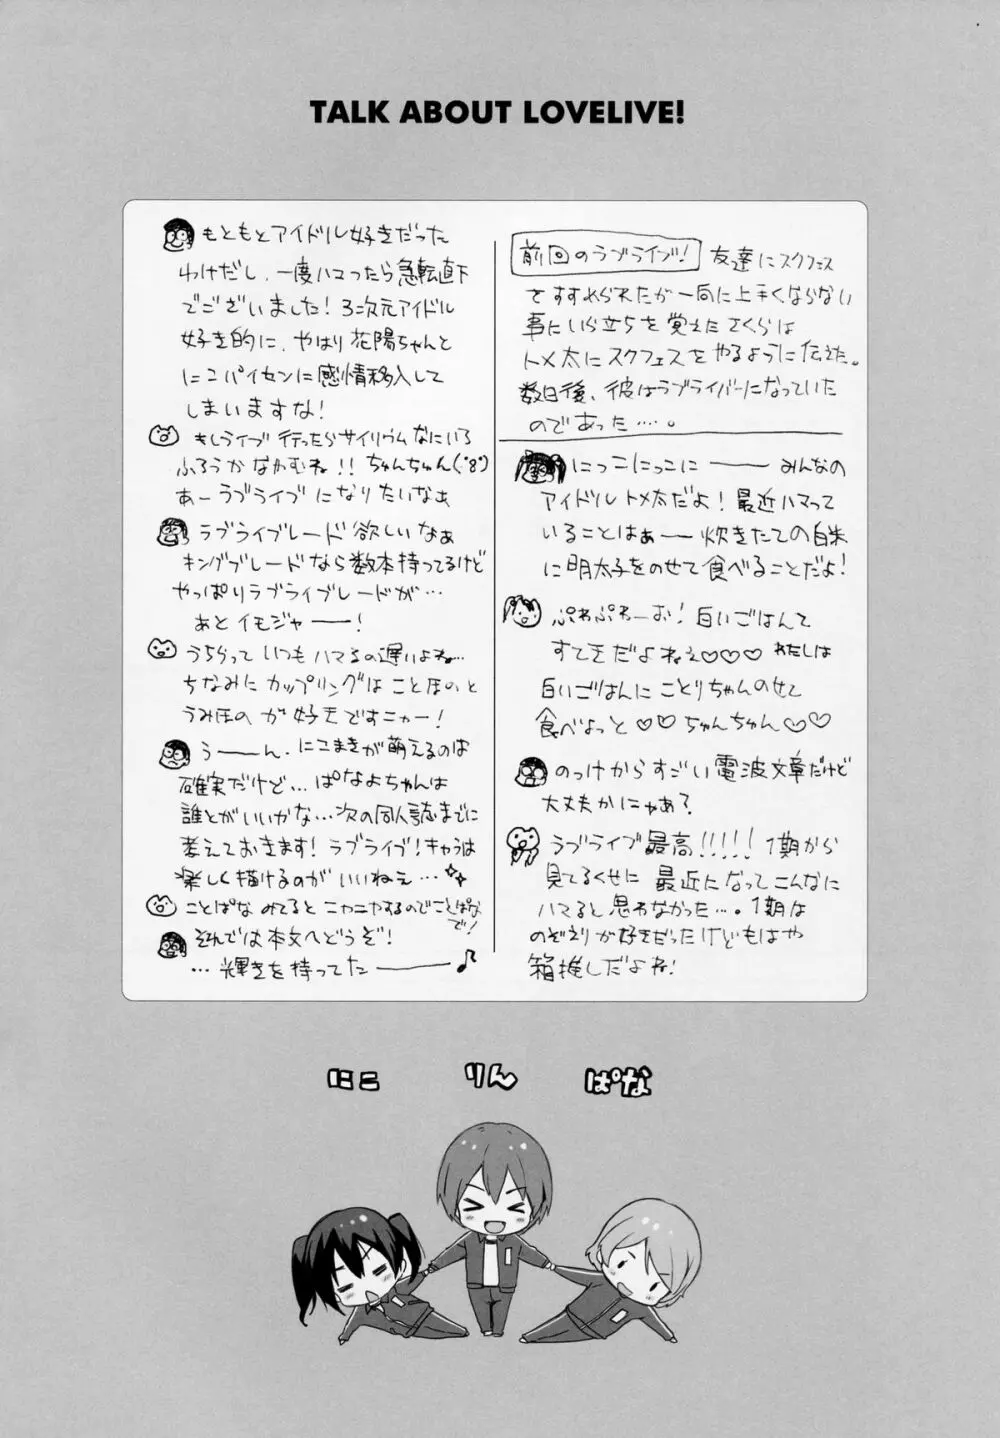 TALK ABOUT LOVELIVE!
前回のラブライブ! 友達にスクフェス
をすすめられたが一向に上手くならない
事にいら立ちを覚えたさくらは
トメ太にスクフェスをやるように伝えた。
数日後、彼はラブライバーになっていた
のであった…。
にっこにっこにーーー みんなの
アイドルトメ太だよ!最近ハマって
いることはぁー 炊きたての白米
に明太子をのせて食べることだよ!
ぷわぷわーお!白いごはんて
すてきだよねぇ♡♡♡ わたしは
白いごはんにことりちゃんのせて
食べよっと♡♡ちゅんちゅん♡♡
のっけからすごい電波文章だけど
大丈夫かにゃあ?
ラブライブ最高!!!!! 1期から
見てるくせに最近になってこんなに
ハマると思わなかった…。1期は
のぞえりが好きだったけどもはや
箱推しだよね!
もともとアイドル好きだった
わけだし、一度ハマったら急転直下
でございました!3次元アイドル
好き的に、やはり花陽ちゃんと
にこパイセンに感情移入して
しまいますな!
もしライブ行ったらサイリウムなにいろ
ふろうかなやむね!!ちゅんちゅん(・8・)
あーラブライブになりたいなぁ
ラブライブレード欲しいなぁ
キングブレードなら数本持ってるけど
やっぱりラブライブレードが…
あとイモジャーー!
うちらっていつもハマるの遅いよね…
ちなみにカップリングはことほのと
うみほのが好きですニャー!
うーーん、にこまきが萌えるのは
確実だけど…ぱなよちゃんは
誰とがいいかな…次の同人誌までに
考えておきます!ラブライブ!キャラは
楽しく描けるのがいいねぇ…
ことぱなみてるとニヤニヤするのでことぱな
で!
そんでは本文へどうぞ!
…輝きを持ってたーーー♪
にこ りん ぱな